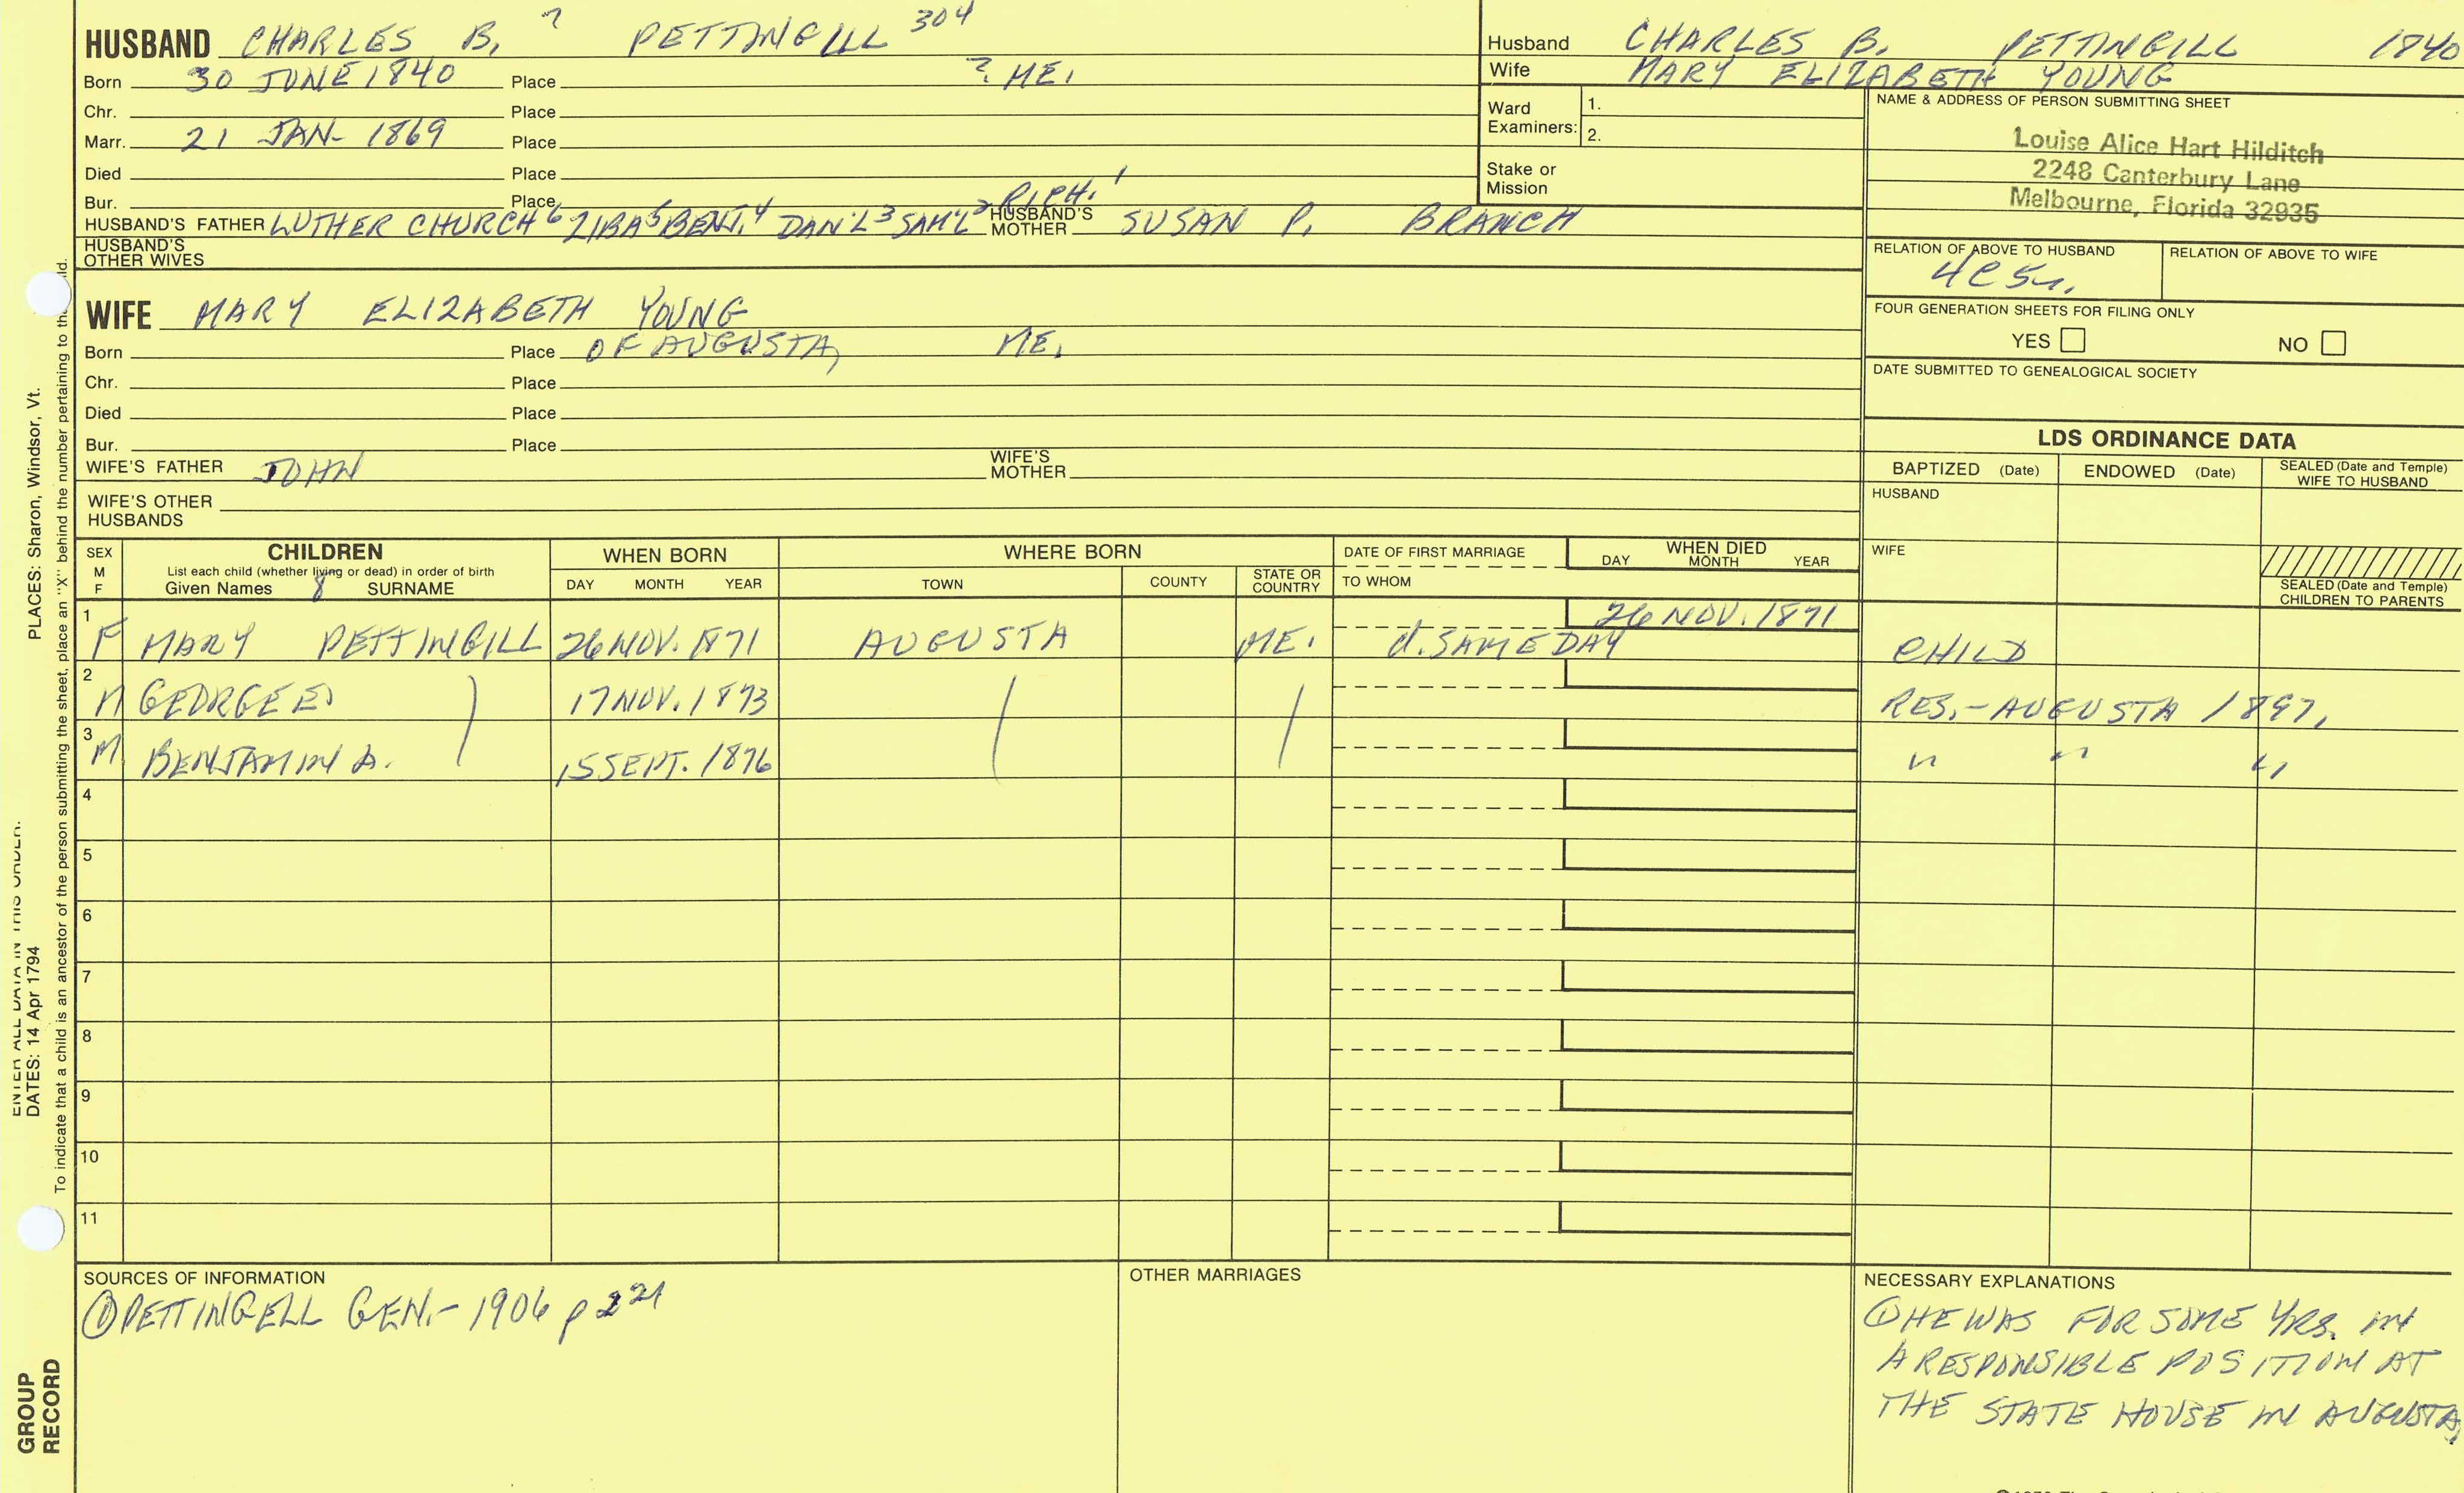 HUSBAND CHARLES B. 7 PETTINGILL 304
Born 30 JUNE 1840 Place ? ME.
Chr. Place
Marr. 21 JAN- 1869 Place
Died Place
Bur. Place
HUSBAND'S FATHER LUTHER CHURCH 6 ZIBA 5 BENJ. 4 DAN'L 3 SAM'L 2 RICH. 1 HUSBAND'S MOTHER SUSAN P. BRANCH
HUSBAND'S OTHER WIVES
WIFE MARY ELIZABETH YOUNG
Born Place OF AUGUSTA, ME.
Chr. Place
Died Place
Bur. Place
WIFE'S FATHER JOHN WIFE'S MOTHER
WIFE'S OTHER HUSBANDS
Husband CHARLES B. PETTINGILL 1840
Wife MARY ELIZABETH YOUNG
Ward Examiners: 1.
2.
Stake or Mission
NAME & ADDRESS OF PERSON SUBMITTING SHEET
Louise Alice Hart Hilditch
2248 Canterbury Lane
Melbourne, Florida 32935
RELATION OF ABOVE TO HUSBAND RELATION OF ABOVE TO WIFE
FOUR GENERATION SHEETS FOR FILING ONLY
YES NO
DATE SUBMITTED TO GENEALOGICAL SOCIETY
LDS ORDINANCE DATA
BAPTIZED (Date) ENDOWED (Date) SEALED (Date and Temple) WIFE TO HUSBAND
HUSBAND
WIFE
SEALED (Date and Temple) CHILDREN TO PARENTS
SEX M F
CHILDREN
List each child (whether living or dead) in order of birth
Given Names 8 SURNAME
WHEN BORN
DAY MONTH YEAR
WHERE BORN
TOWN COUNTY STATE OR COUNTRY
DATE OF FIRST MARRIAGE
TO WHOM
WHEN DIED
DAY MONTH YEAR
1 F MARY PETTINGILL 26 NOV. 1871 AUGUSTA ME. d. SAME DAY 26 NOV. 1871 CHILD
2 M GEORGE E. 17 NOV. 1873 RES.-AUGUSTA 1897.
3 M BENJAMIN A. 15 SEPT. 1876 " " "
4
5
6
7
8
9
10
11
SOURCES OF INFORMATION
① PETTINGELL GEN.- 1906 p 221
OTHER MARRIAGES
NECESSARY EXPLANATIONS
① HE WAS FOR SOME YRS. IN
A RESPONSIBLE POSITION AT
THE STATE HOUSE IN AUGUSTA,
ENTER ALL DATA IN THIS ORDER:
DATES: 14 Apr 1794 PLACES: Sharon, Windsor, Vt.
To indicate that a child is an ancestor of the person submitting the sheet, place an "X" behind the number pertaining to the
GROUP
RECORD